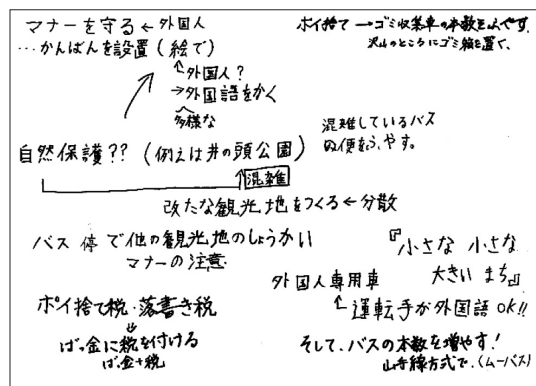 マナーを守る ← 外国人
…かんばんを設置 (絵で)
↑外国人?
→外国語をかく
多様な
ポイ捨て → ゴミ収集車の本数をふやす.
沢山のところにゴミ箱を置く.
自然保護?? (例えば井の頭公園)
混雑しているバス
の便をふやす。
混雑
改たな観光地をつくる ← 分散
バス停で他の観光地のしょうかい
マナーの注意
『小さな 小さな
大きい まち』
外国人専用車
↑ 運転手が外国語 OK!!
ポイ捨て税・落書き税
⇓
ばっ金に税を付ける
ばっ金+税
そして、バスの本数を増やす!
山手線方式で.(ムーバス)